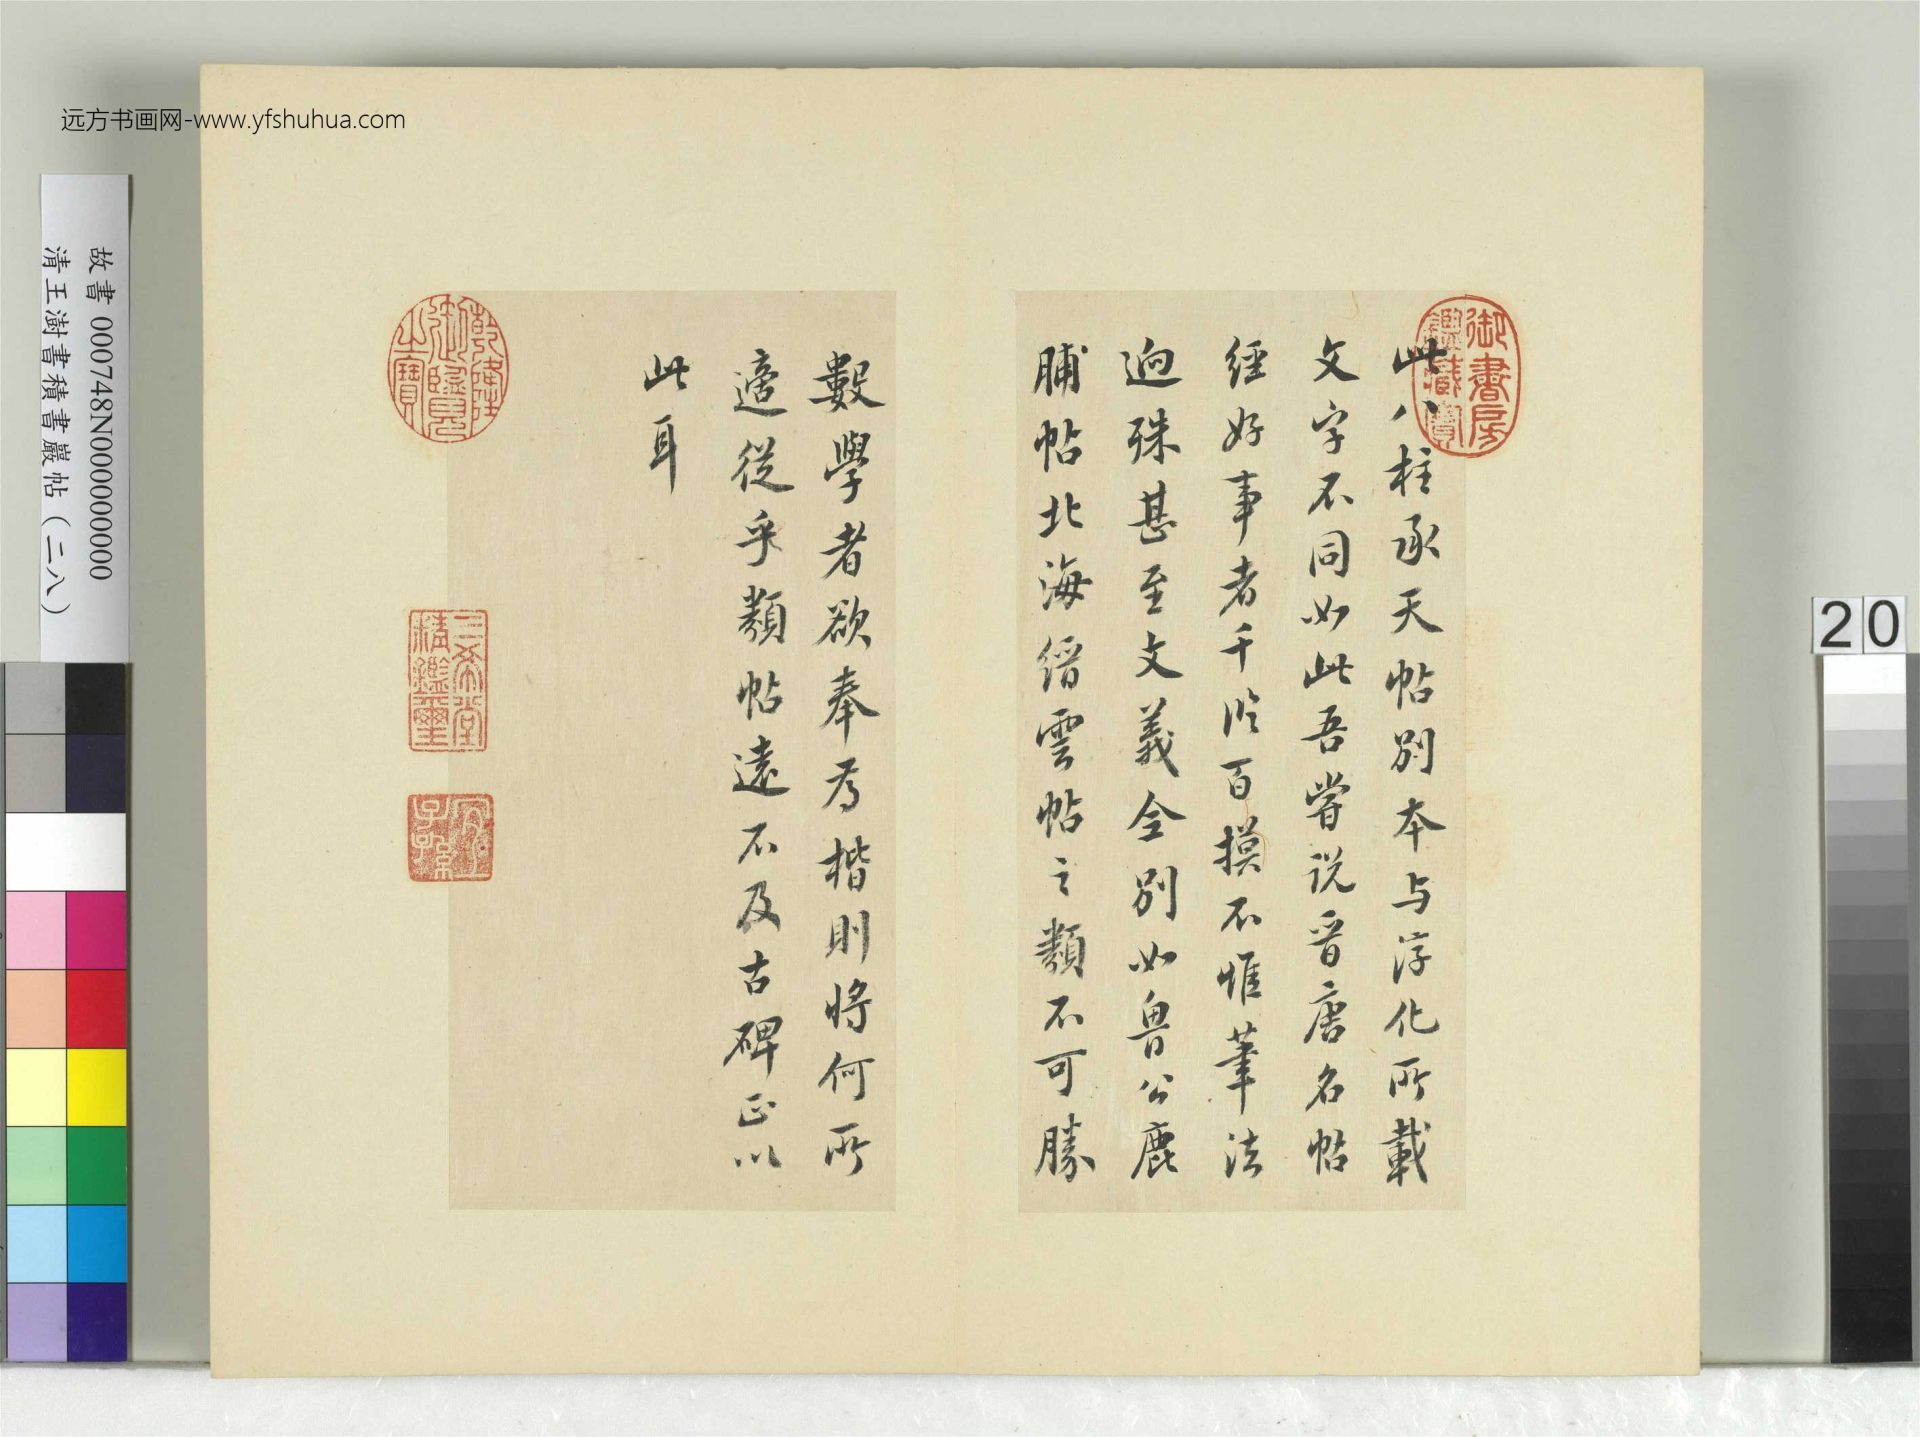 远方书画网-www.yfshuhua.com
故書 000748N000000000
清王澍書積書巖帖(二八)
20
御書房鑑藏寶
此八柱承天帖別本与淳化所載
文字不同如此吾嘗説晉唐名帖
經好事者千臨百摸不惟筆法
逈殊甚至文義全別如魯公鹿
脯帖北海縉雲帖之類不可勝
數學者欲奉為楷則將何所
適從乎類帖遠不及古碑正以
此耳
乾隆御覽之寶
三希堂精鑑璽
宜子孫